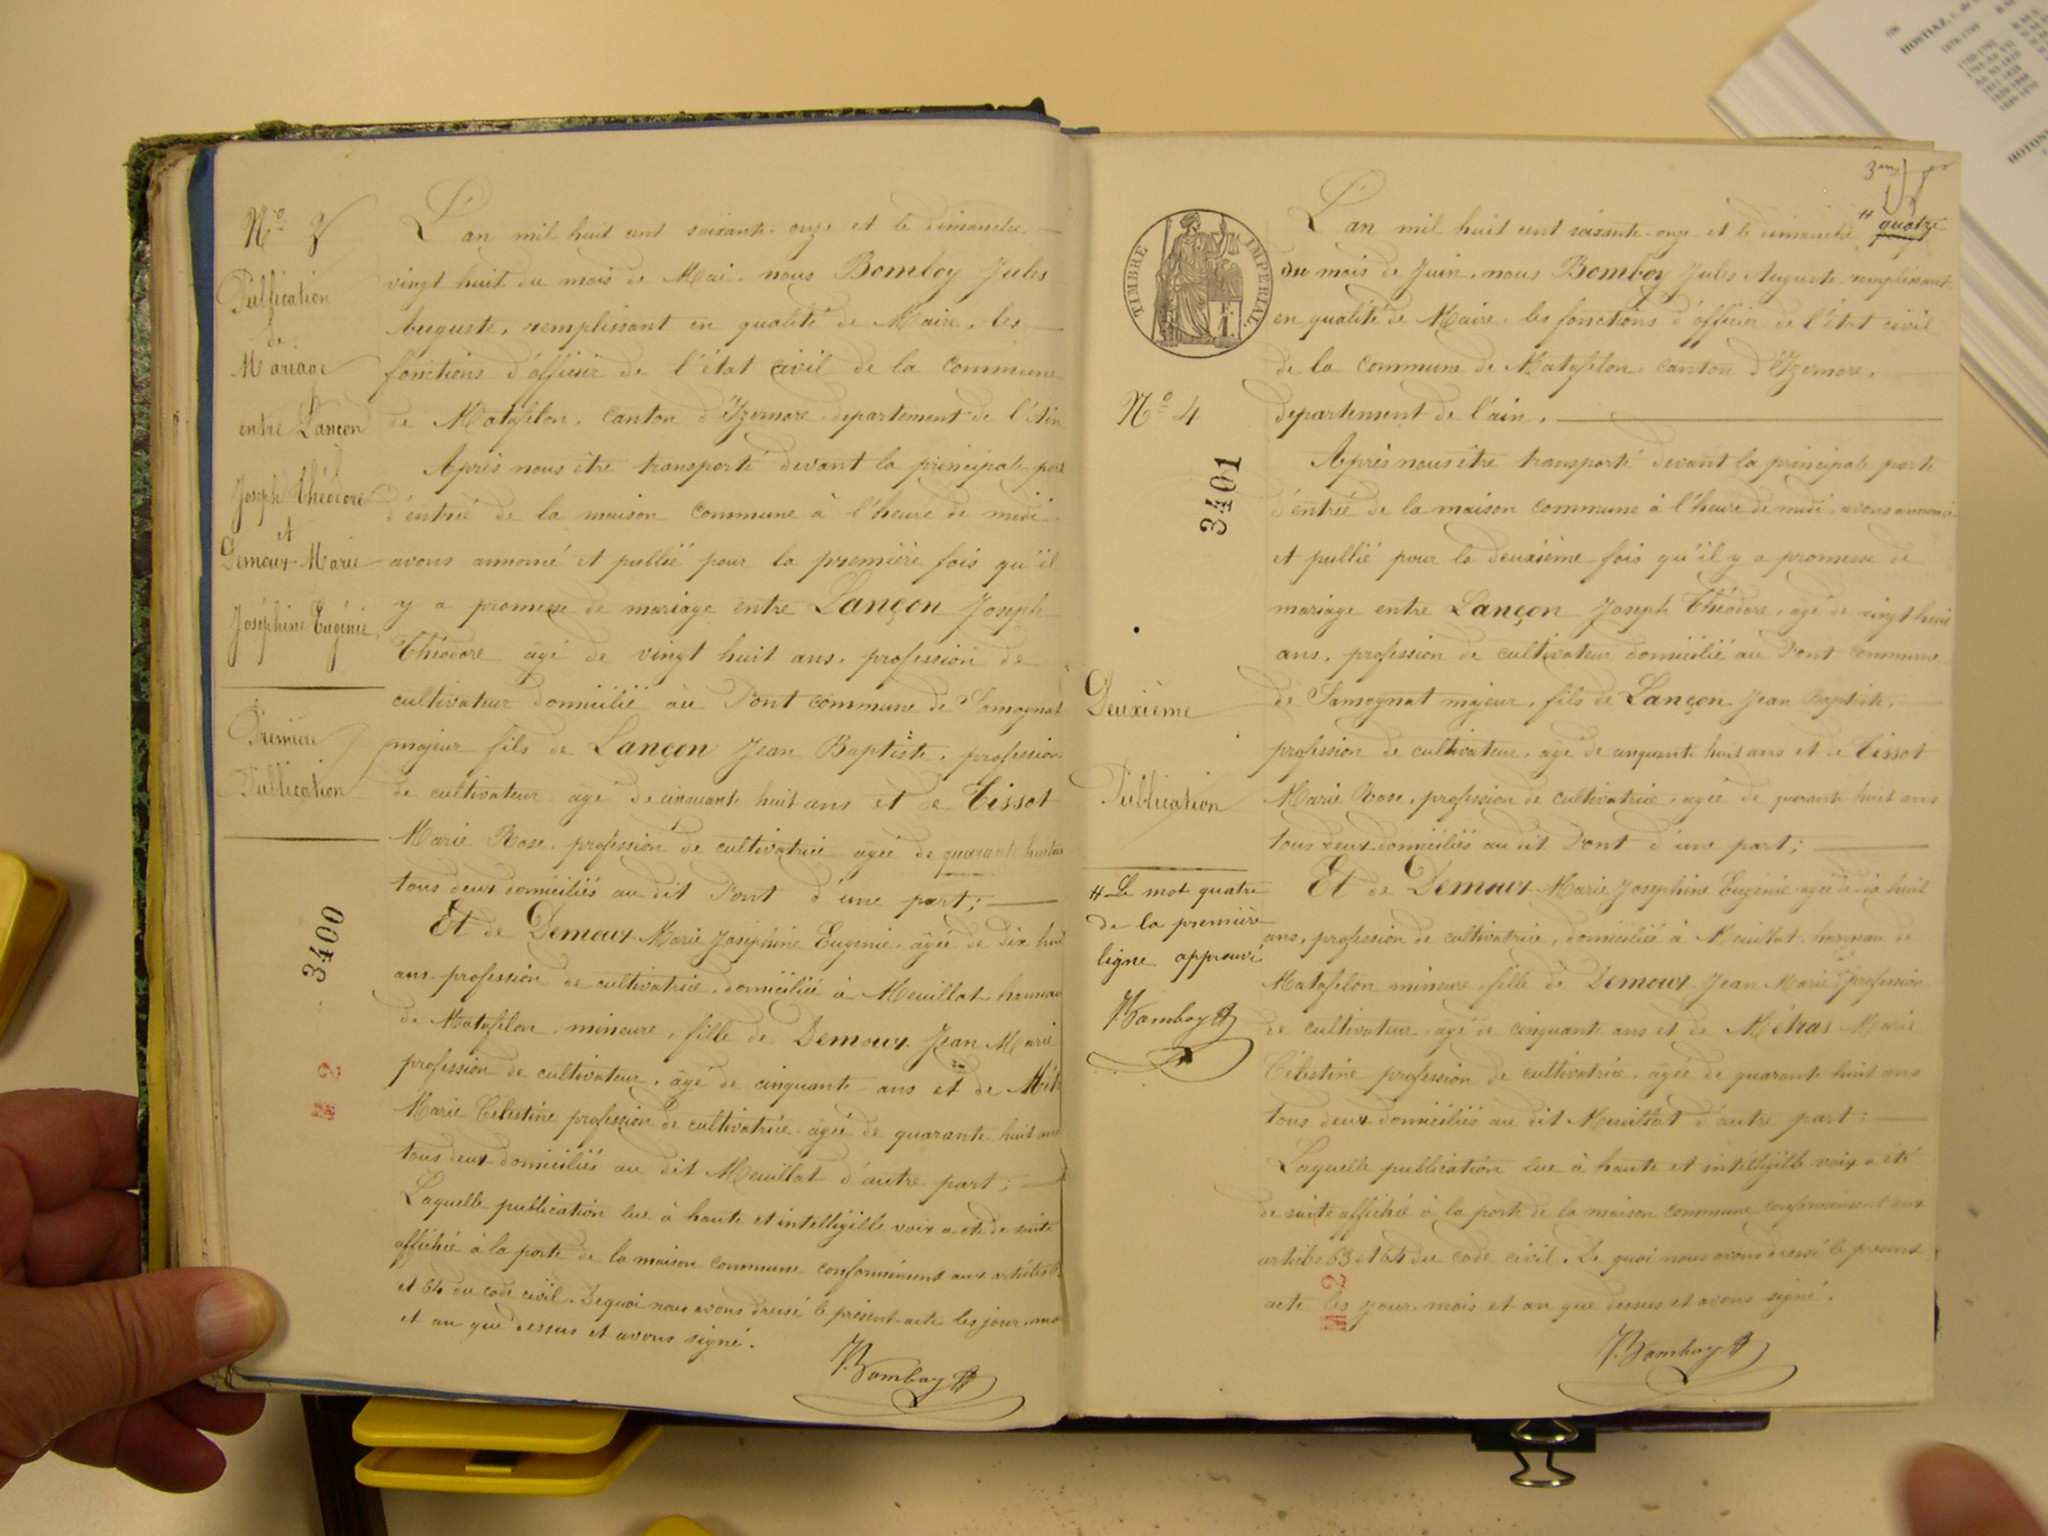 Nº 3
Publication
de
Mariage
entre Lançon
Joseph Théodore
et
Demoux Marie
Joséphine Eugénie
Première
Publication
3400
L'an mil huit cent soixante-onze et le dimanche
vingt huit du mois de Mai, nous Bomboy Jules
Auguste, remplissant en qualité de Maire, les
fonctions d'officier de l'état civil de la commune
de Matafelon, canton d'Izernore, département de l'Ain
Après nous être transporté devant la principale porte
d'entrée de la maison commune à l'heure de midi
avons annoncé et publié pour la première fois qu'il
y a promesse de mariage entre Lançon Joseph
Théodore âgé de vingt huit ans, profession de
cultivateur domicilié au Pont commune de Samognat
majeur fils de Lançon Jean Baptiste, profession
de cultivateur âgé de cinquante huit ans et de Tissot
Marie Rose, profession de cultivatrice âgée de quarante huit ans
tous deux domiciliés au dit Pont d'une part;
Et de Demoux Marie Joséphine Eugénie, âgée de dix huit
ans, profession de cultivatrice, domiciliée à Meuillat hameau
de Matafelon, mineure, fille de Demoux Jean Marie
profession de cultivateur, âgé de cinquante ans et de
Marie Célestine profession de cultivatrice âgée de quarante huit ans
tous deux domiciliés au dit Meuillat d'autre part;
Laquelle publication lue à haute et intelligible voix a été de suite
affichée à la porte de la maison commune conformément aux articles
et 64 du code civil. De quoi nous avons dressé le présent acte les jour, mois
et an que dessus et avons signé.
JBomboy
M 2
TIMBRE IMPERIAL.
Nº 4
3401
Deuxième
Publication
# Le mot quatre
de la première
ligne approuvé
JBomboy
L'an mil huit cent soixante-onze et le dimanche # quatre
du mois de Juin, nous Bomboy Jules Auguste remplissant
en qualité de Maire, les fonctions d'officier de l'état civil
de la commune de Matafelon, canton d'Izernore,
département de l'ain.
Après nous être transporté devant la principale porte
d'entrée de la maison commune à l'heure de midi, avons annoncé
et publié pour la deuxième fois qu'il y a promesse de
mariage entre Lançon Joseph Théodore, âgé de vingt huit
ans, profession de cultivateur domicilié au Pont commune
de Samognat majeur, fils de Lançon Jean Baptiste,
profession de cultivateur, âgé de cinquante huit ans et de Tissot
Marie Rose, profession de cultivatrice, âgée de quarante huit ans
tous deux domiciliés au dit Pont d'une part;
Et de Demoux Marie Joséphine Eugénie âgée de dix huit
ans, profession de cultivatrice, domiciliée à Meuillat hameau de
Matafelon mineure, fille de Demoux Jean Marie profession
de cultivateur, âgé de cinquante ans et de Métras Marie
Célestine profession de cultivatrice, âgée de quarante huit ans
tous deux domiciliés au dit Meuillat d'autre part;
Laquelle publication lue à haute et intelligible voix a été
de suite affichée à la porte de la maison commune conformément aux
articles 63 et 64 du code civil. De quoi nous avons dressé le présent
acte les jour, mois et an que dessus et avons signé.
M 2
JBomboy